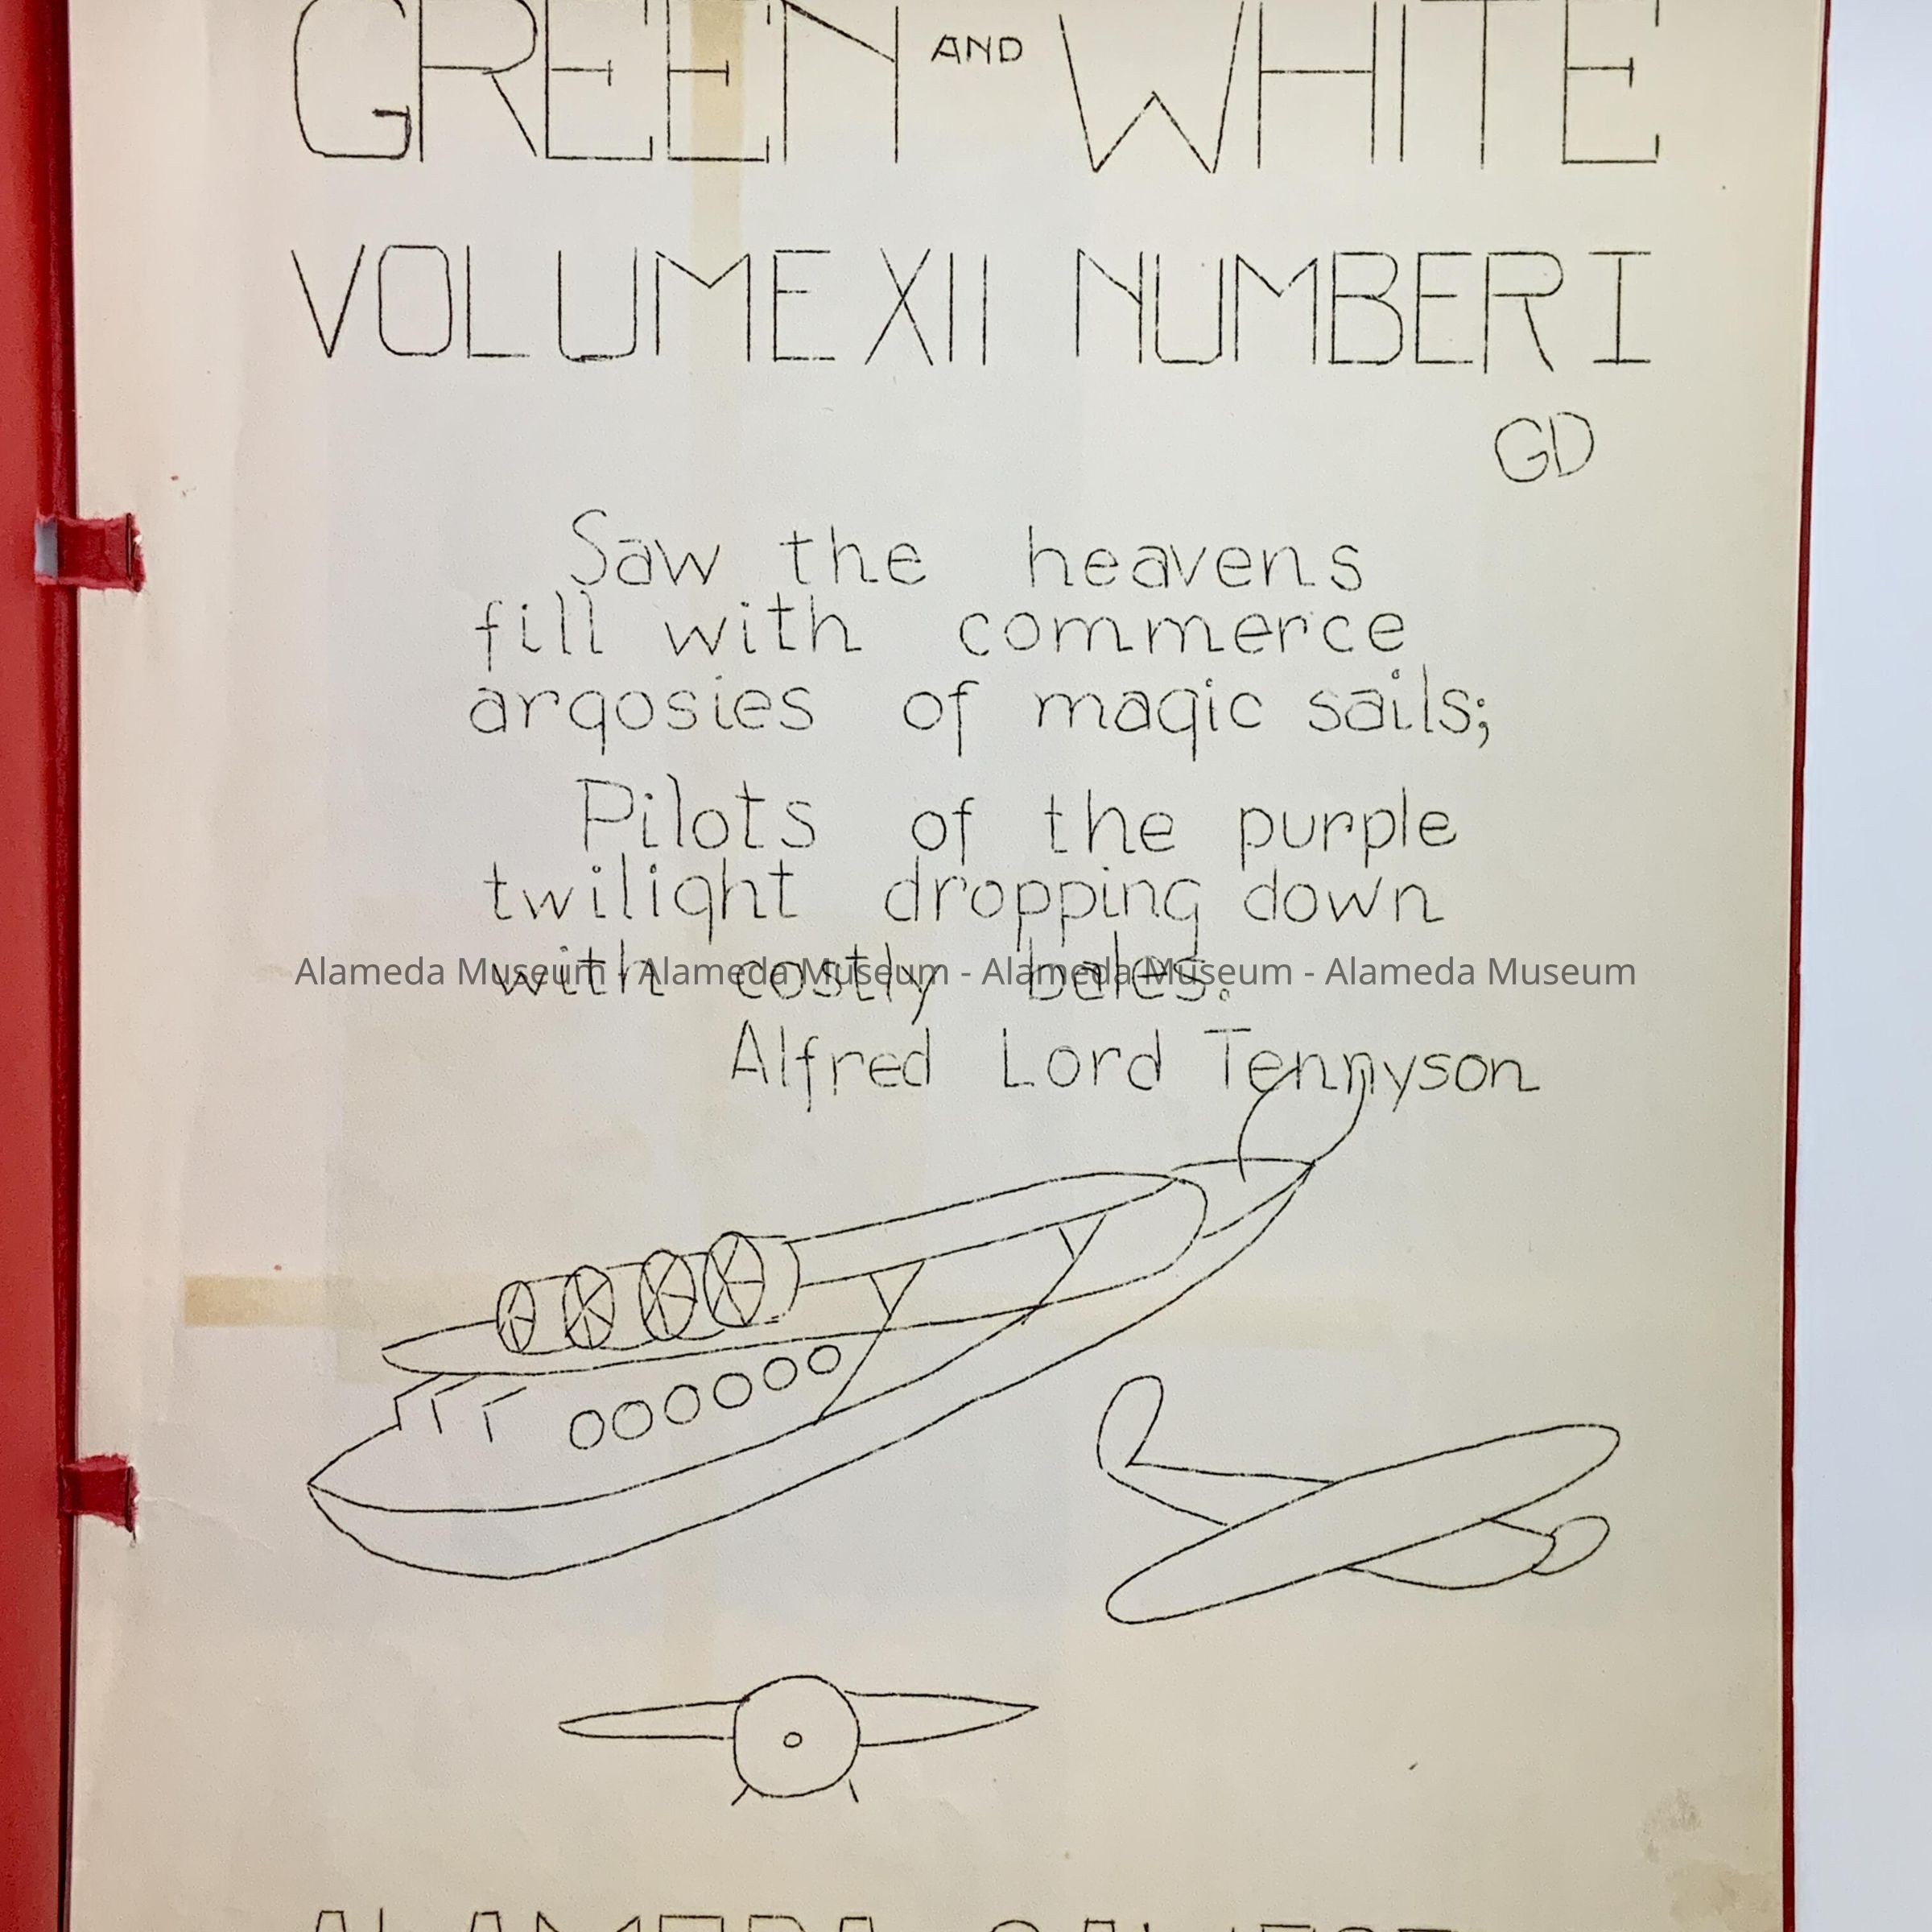 GREEN AND WHITE
VOLUME XII NUMBER I
GD
Saw the heavens
fill with commerce
argosies of magic sails;
Pilots of the purple
twilight dropping down
with costly bales.
Alameda Museum - Alameda Museum - Alameda Museum - Alameda Museum
Alfred Lord Tennyson
ALAMEDA